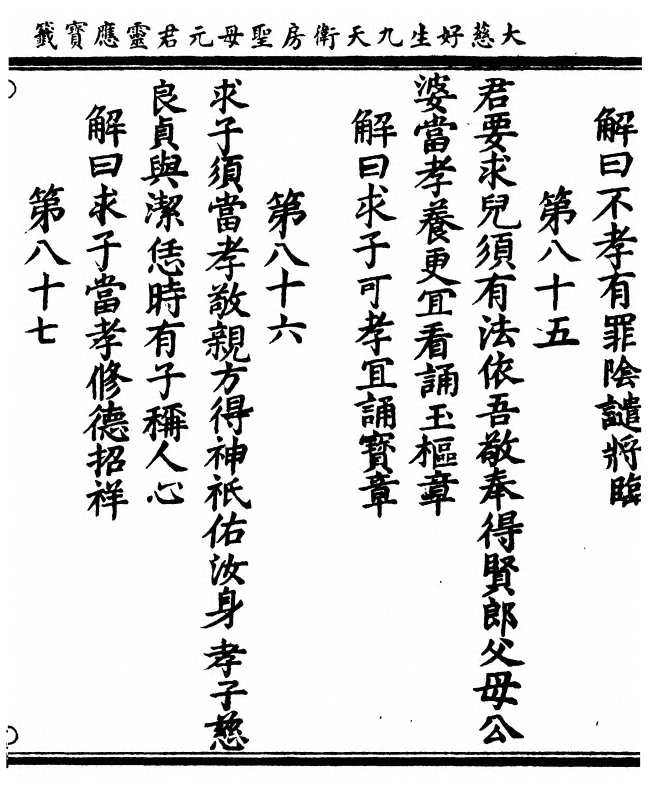 大慈好生九天衛房聖母元君靈應寶籤
解曰不孝有罪陰譴將臨
第八十五
君要求兒須有法依吾敬奉得賢郎父母公
婆當孝養更冝看誦玉樞章
解曰求子可孝冝誦寳章
第八十六
求子須當孝敬親方得神祇佑汝身孝子慈
良貞與潔恁時有子稱人心
解曰求子當孝修德招祥
第八十七